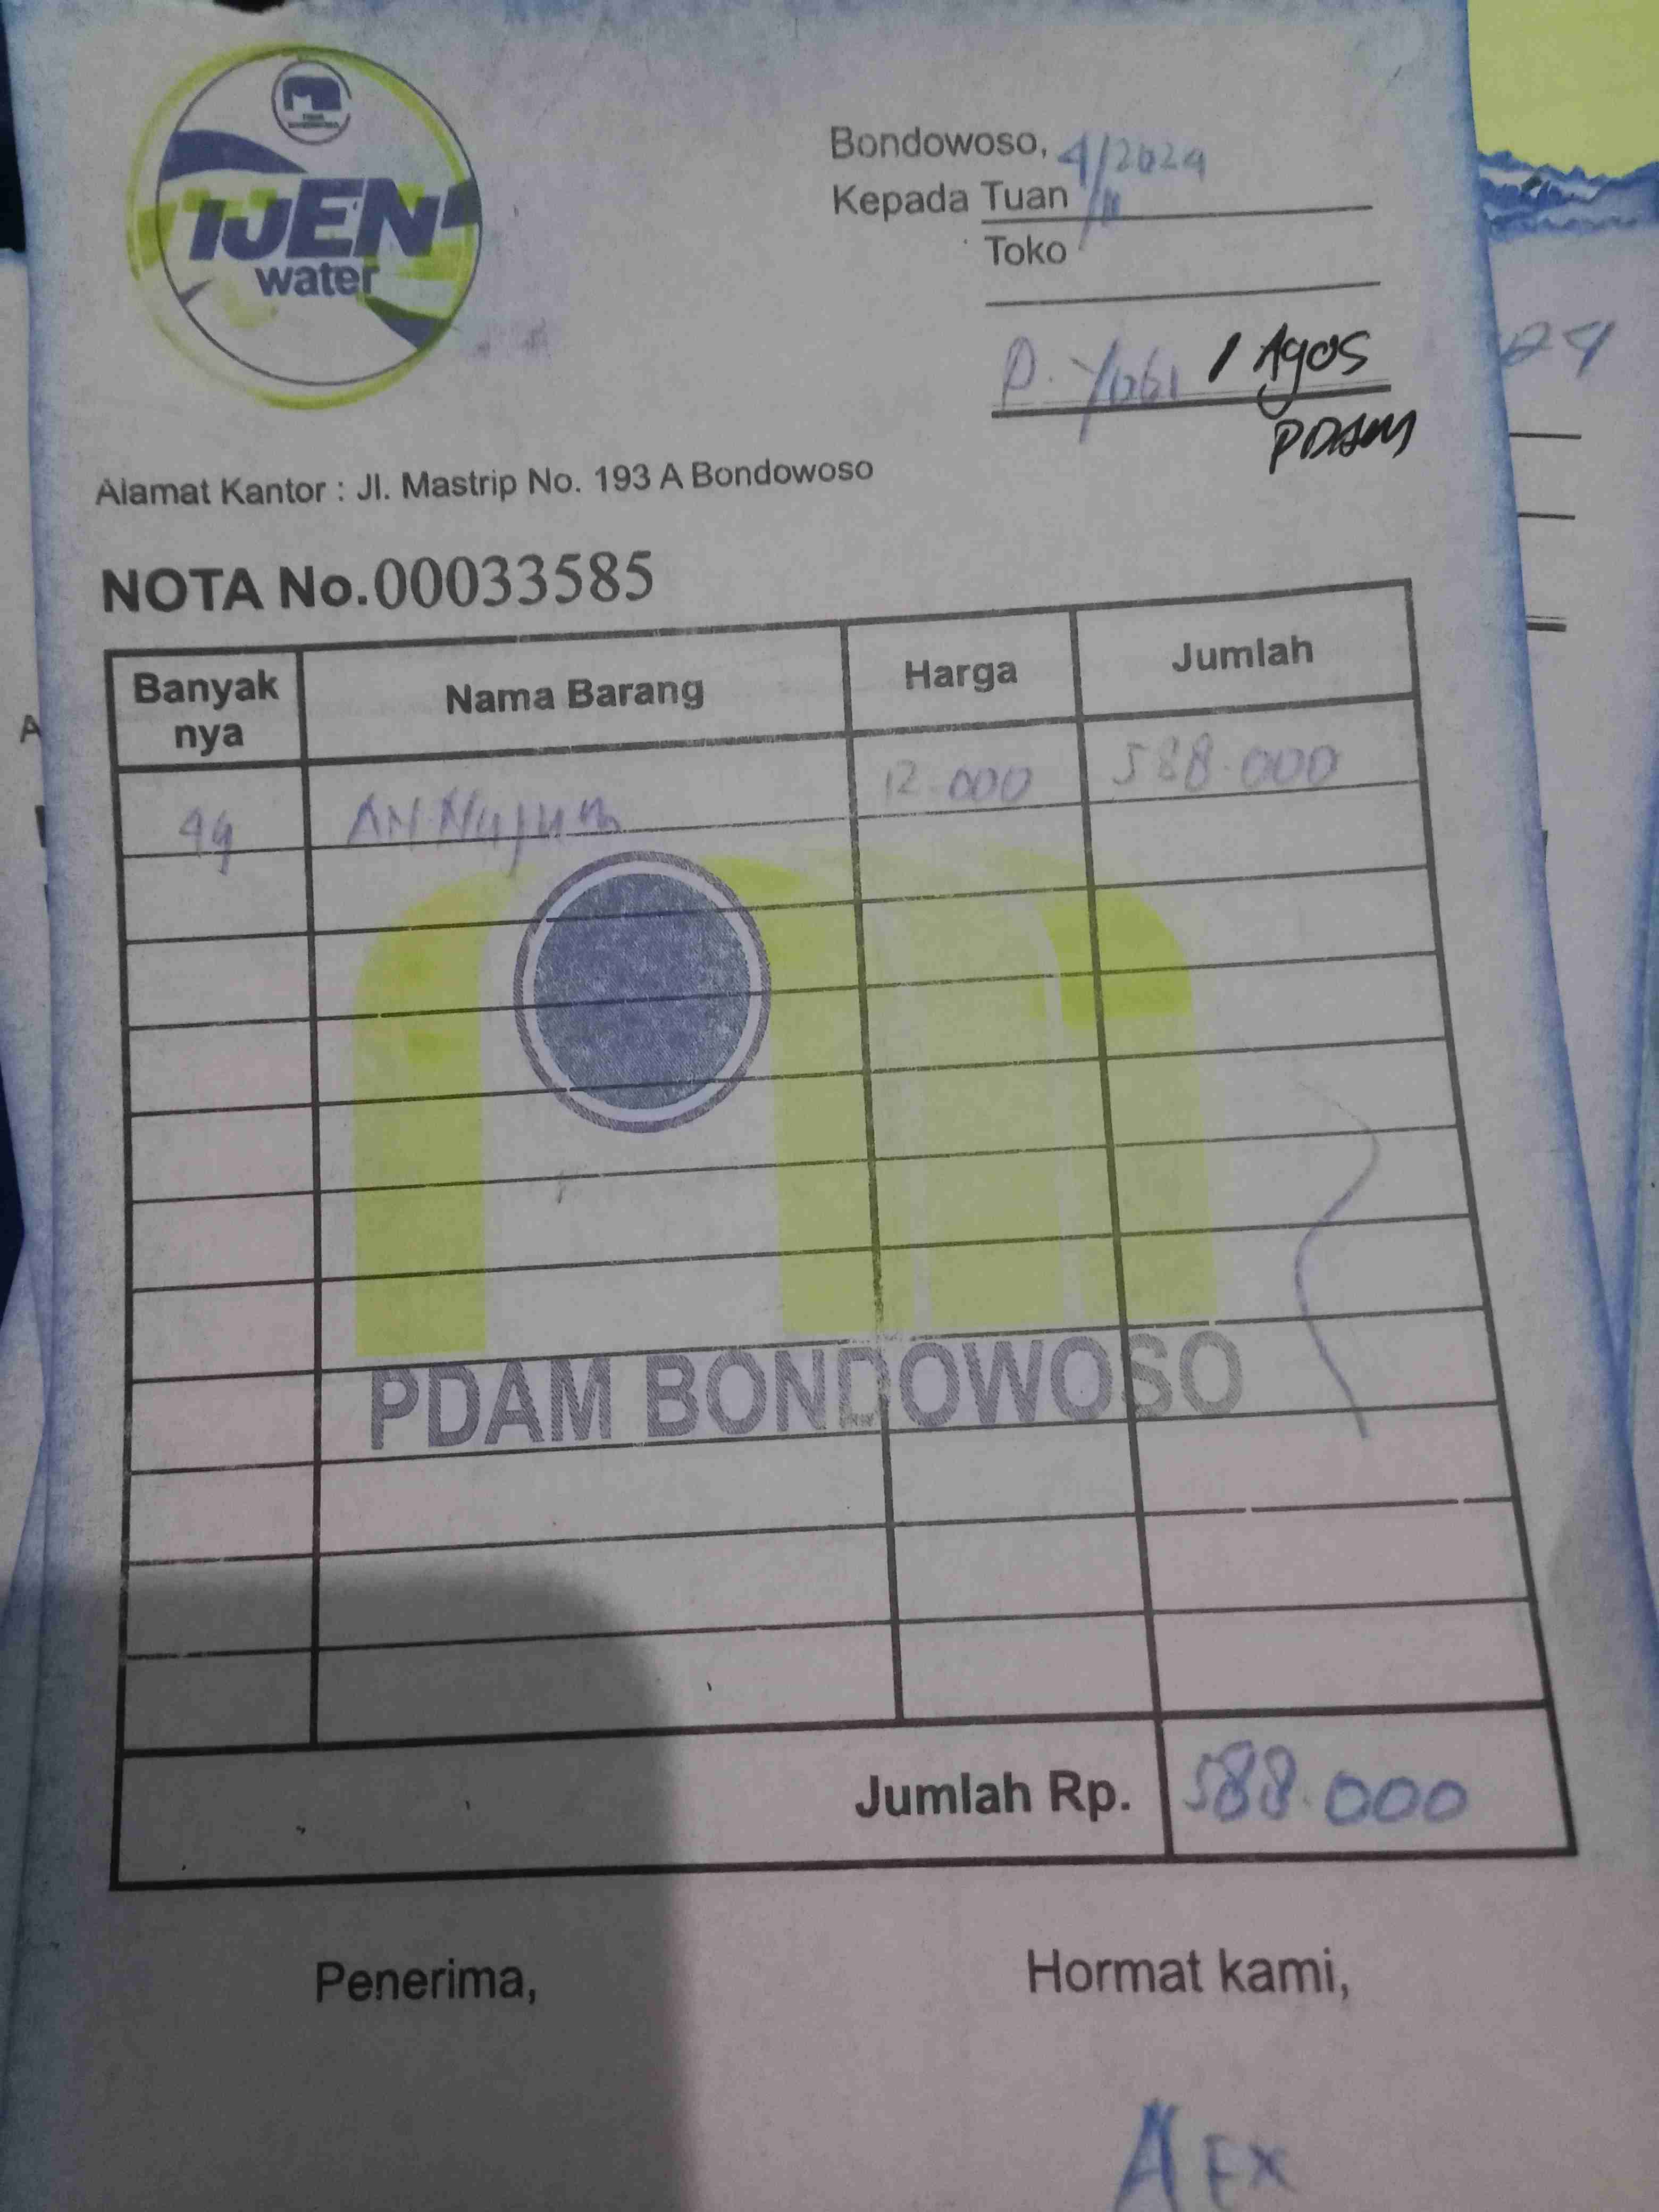 IJEN
water
Bondowoso, 4/2024
Kepada Tuan
Toko
P. Yobi / Agos
PDAM
Alamat Kantor : Jl. Mastrip No. 193 A Bondowoso
NOTA No.00033585
Banyak nya Nama Barang Harga Jumlah
49 AN Nujum 12.000 588.000
PDAM BONDOWOSO
Jumlah Rp. 588.000
Penerima, Hormat kami,